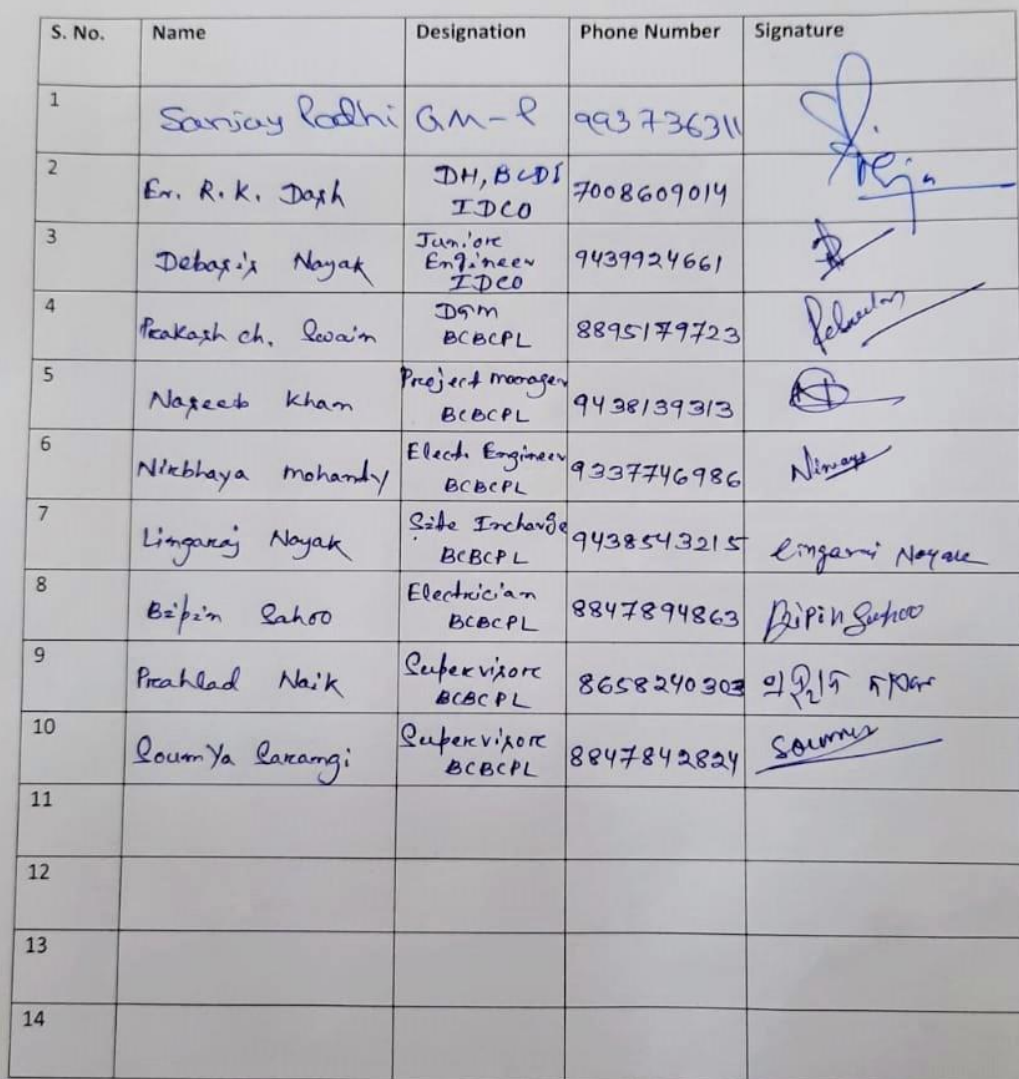 S. No. Name Designation Phone Number Signature
1 Sanjay Padhi GM-P 993736311
2 Er. R. K. Dash DH, BCDI IDCO 7008609014
3 Debasis Nayak Juniore Engineer IDCO 9439924661
4 Prakash ch. Swain DGM BCBCPL 8895179723
5 Naseeb Khan Project manager BCBCPL 9438139313
6 Nirbhaya mohanty Elect. Engineer BCBCPL 9337746986
7 Lingaraj Nayak Site Incharge BCBCPL 9438543215 Lingaraj Nayak
8 Bipin Sahoo Electrician BCBCPL 8847894863 Bipin Sahoo
9 Prahlad Naik Supervisore BCBCPL 8658240303
10 SoumYa Sarangi Supervisore BCBCPL 8847842824 Soumya
11
12
13
14